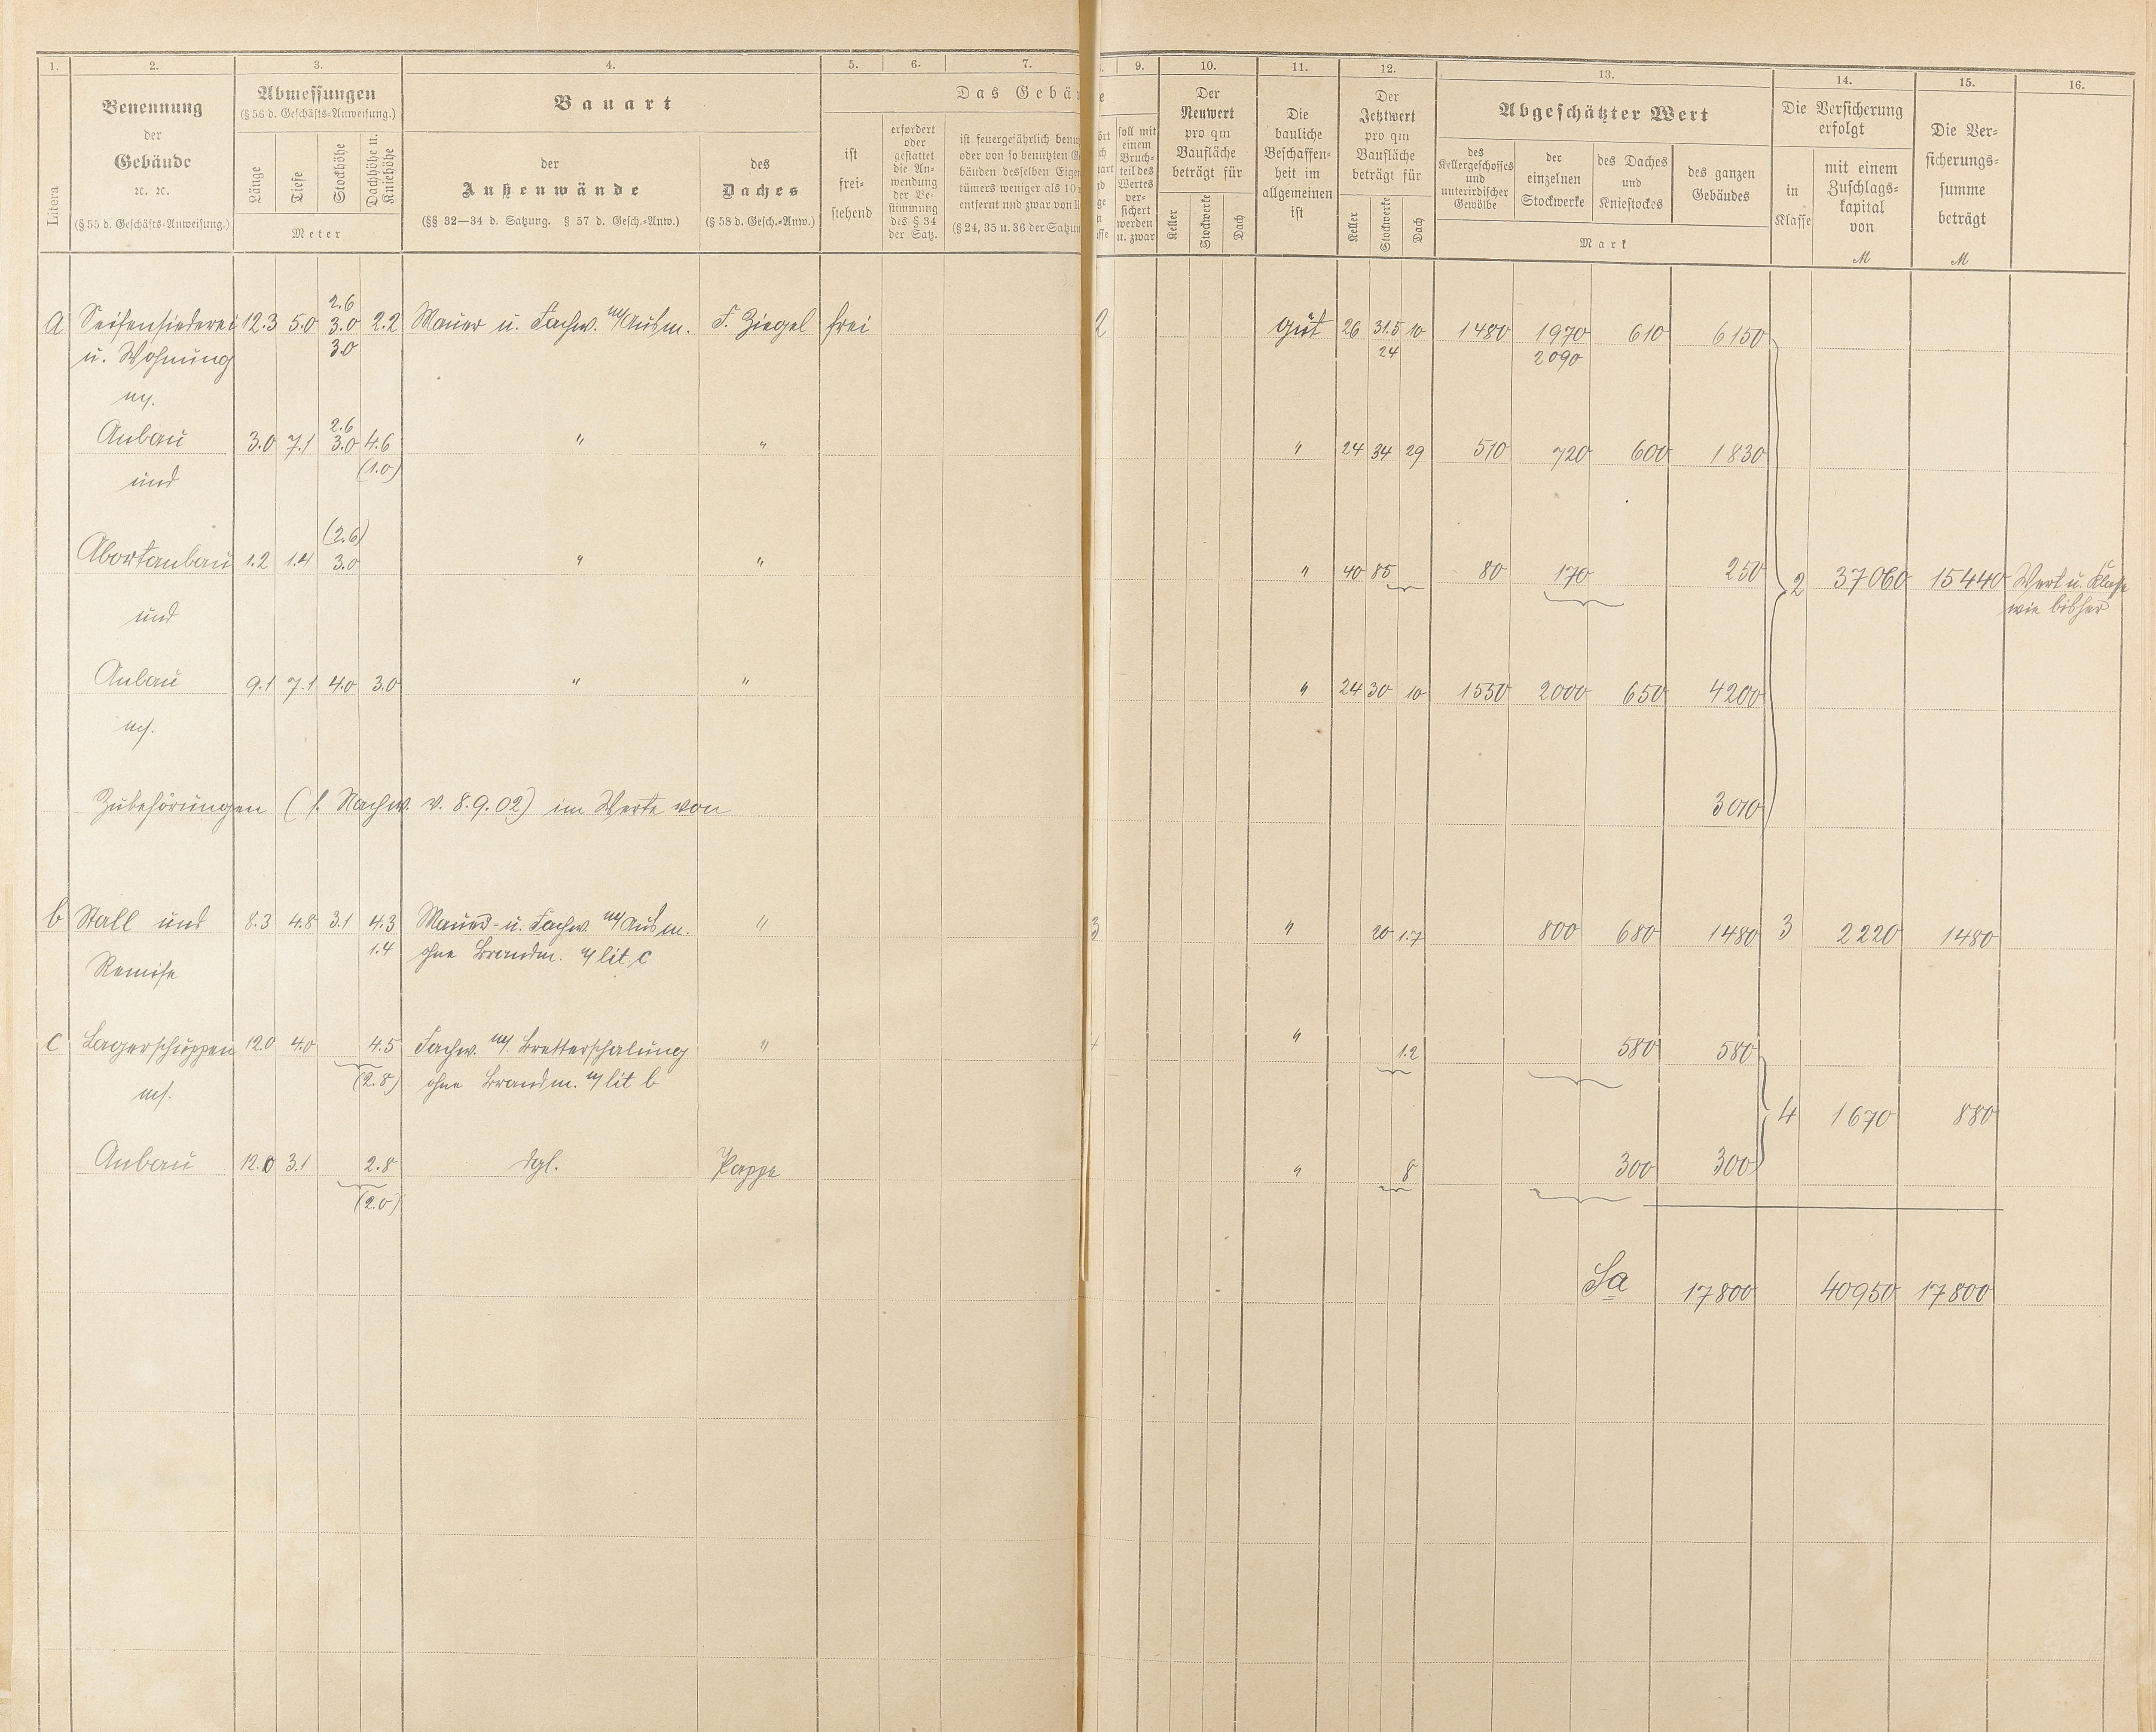 1. 2. 3. 4. 5. 6. 7. 9. 10. 11. 12. 13. 14. 15. 16.
Litera
Benennung
der
Gebäude
ꝛc. ꝛc.
(§ 55 d. Geschäfts-Anweisung.)
Abmessungen
(§ 56 d. Geschäfts-Anweisung.)
Länge
Tiefe
Stockhöhe
Dachhöhe u.
Kniehöhe
Meter
Bauart
der
Außenwände
(§§ 32—34 d. Satzung. § 57 d. Gesch.-Anw.)
des
Daches
(§ 58 d. Gesch.-Anw.)
Das Gebäu
ist
frei-
stehend
erfordert
oder
gestattet
die An-
wendung
der Be-
stimmung
des § 34
der Satz.
ist feuergefährlich benu
oder von so benutzten G
bänden desselben Eigen
tümers weniger als 10
entfernt und zwar von li
(§ 24, 35 u. 36 der Satzun
soll mit
einem
Bruch-
teil des
Wertes
ver-
sichert
werden
u. zwar
Der
Neuwert
pro qm
Baufläche
beträgt für
Keller
Stockwerke
Dach
Die
bauliche
Beschaffen-
heit im
allgemeinen
ist
Der
Jetztwert
pro qm
Baufläche
beträgt für
Keller
Stockwerke
Dach
Abgeschätzter Wert
des
Kellergeschosses
und
unterirdischer
Gewölbe
der
einzelnen
Stockwerke
des Daches
und
Kniestockes
des ganzen
Gebäudes
Mark
Die Versicherung
erfolgt
in
Klasse
mit einem
Zuschlags-
kapital
von
M
Die Ver-
sicherungs-
summe
beträgt
M
2.6
a Seifensiederei 12.3 5.0 3.0 2.2 Mauer u. Fachw. m/Ausm. F. Ziegel frei 2 gut 26 31.5 10 1480 1970 610 6150
u. Wohnung 3.0 24 2090
m/.
2.6
Anbau 3.0 7.1 3.0 4.6 " " " 24 34 29 510 720 600 1830
(1.0)
und
(2.6)
Abortanbau 1.2 1.4 3.0 " " " 40 85 80 170 250 2 37060 15440 Wert u. Klasse
wie bisher
und
Anbau 9.1 7.1 4.0 3.0 " " " 24 30 10 1550 2000 650 4200
m/.
Zubehörungen (s. Nachw. v. 8.9.02) im Werte von 3010
b Stall und 8.3 4.8 3.1 4.3 Mauer- u. Fachw. m/Ausm. " 3 " 20 17 800 680 1480 3 2220 1480
1.4 ohne Brandm. z/ lit. c
Remise
c Lagerschuppen 12.0 4.0 4.5 Fachw. m/. Bretterschalung " " 12 580 580
(2.8) ohne Brandm. z/ lit b
m/.
4 1670 880
Anbau 12.0 3.1 2.8 dgl. Pappe " 8 300 300
(2.0)
Sa 17800 40950 17800